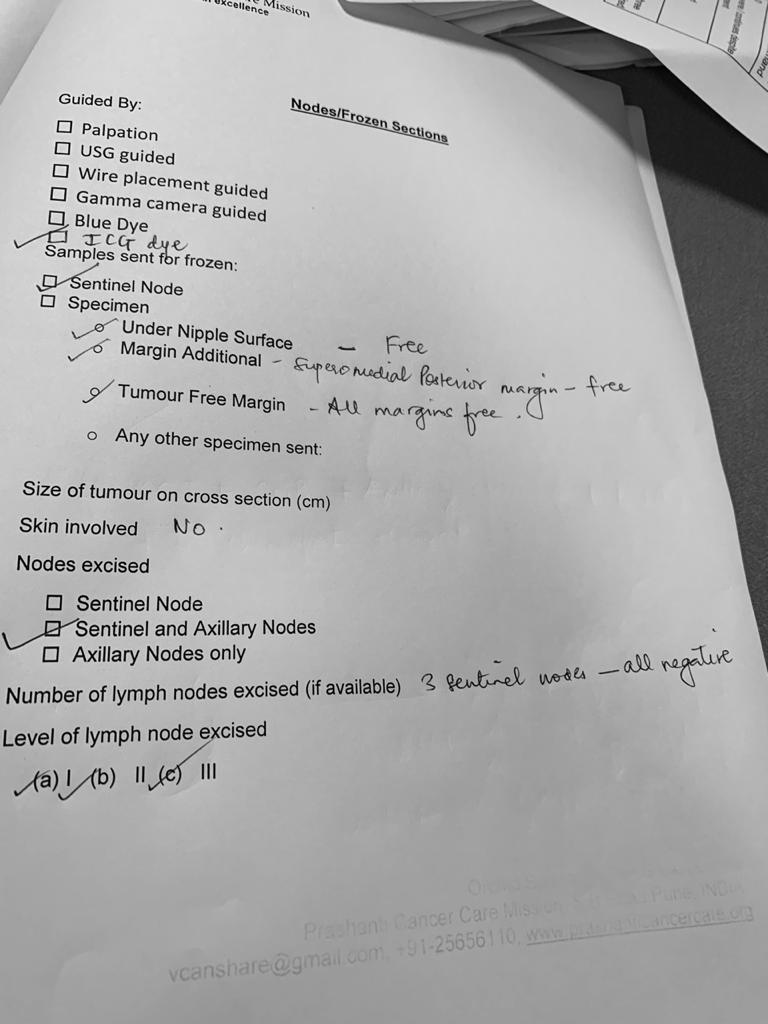 Mission
excellence
Nodes/Frozen Sections
Guided By:
☐ Palpation
☐ USG guided
☐ Wire placement guided
☐ Gamma camera guided
☐ Blue Dye
☑ ICG dye
Samples sent for frozen:
☑ Sentinel Node
☐ Specimen
✓ Under Nipple Surface – Free
✓ Margin Additional – Superomedial Posterior margin – free
✓ Tumour Free Margin – All margins free.
o Any other specimen sent:
Size of tumour on cross section (cm)
Skin involved No.
Nodes excised
☐ Sentinel Node
☑ Sentinel and Axillary Nodes
☐ Axillary Nodes only
Number of lymph nodes excised (if available) 3 sentinel nodes – all negative
Level of lymph node excised
✓(a) I ✓(b) II ✓(c) III
Prashanti Cancer Care Mission, Pune, INDIA
vcanshare@gmail.com, +91-25656110, www.prashanticancercare.org